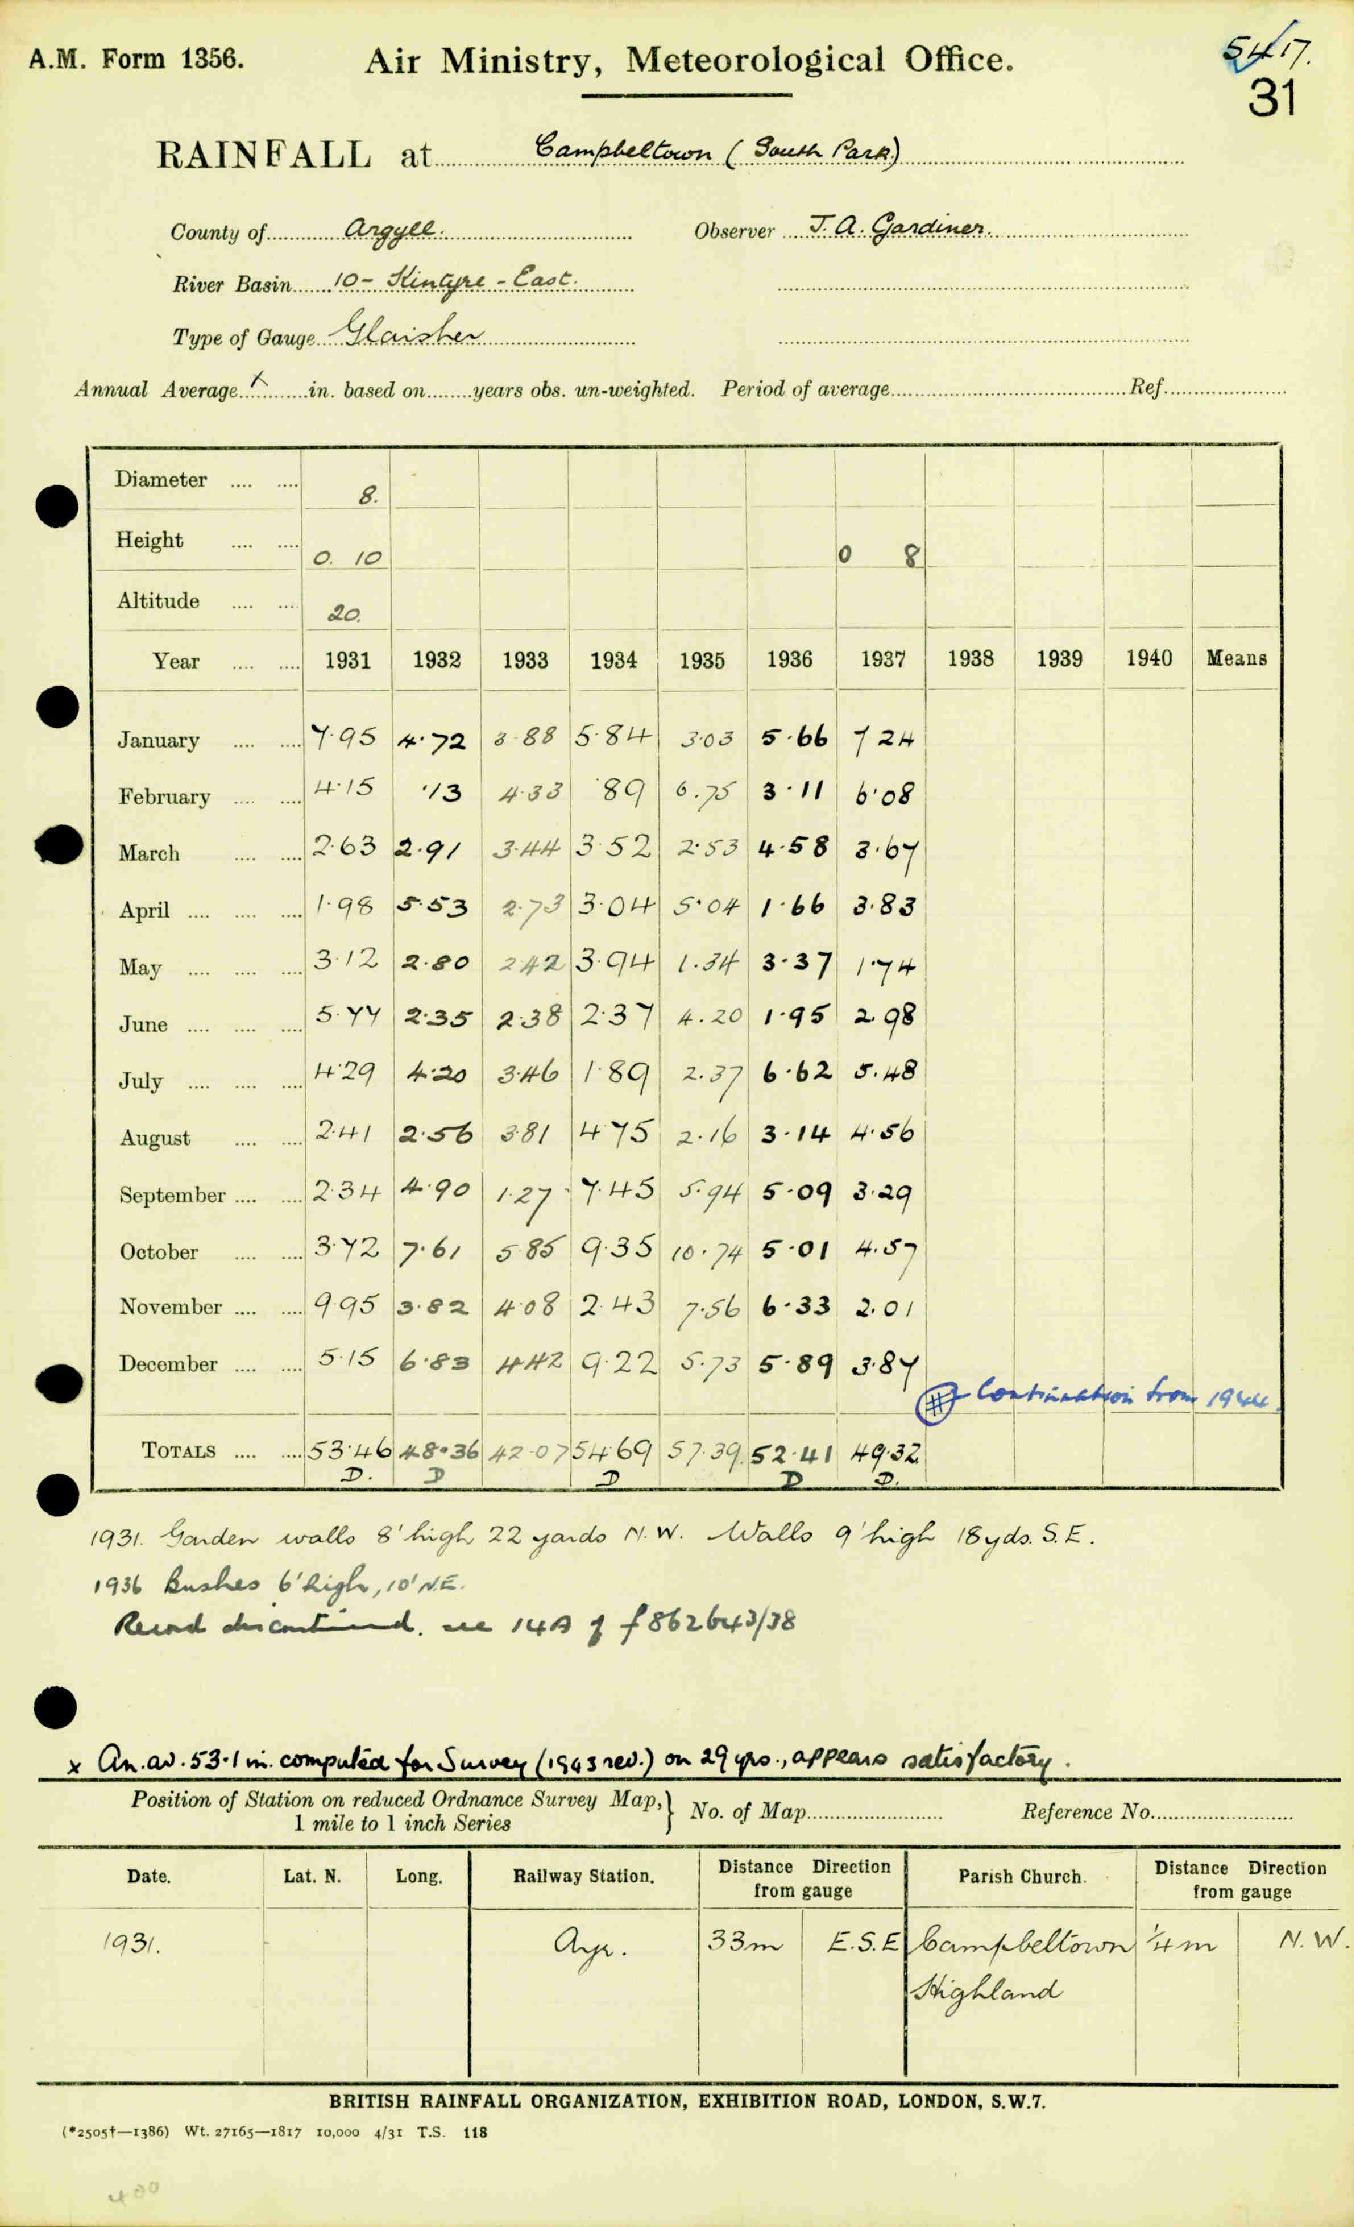 A.M. Form 1356. Air Ministry, Meteorological Office. 5417.
31
RAINFALL at Campbeltown (South Park)
County of Argyll. Observer J. A. Gardiner.
River Basin 10 - Kintyre - East.
Type of Gauge Glaisher
Annual Average x in. based on years obs. un-weighted. Period of average Ref.
Diameter 8.
Height 0. 10 0 8
Altitude 20.
Year 1931 1932 1933 1934 1935 1936 1937 1938 1939 1940 Means
January 7.95 4.72 3.88 5.84 3.03 5.66 7.24
February 4.15 .13 4.33 .89 6.75 3.11 6.08
March 2.63 2.91 3.44 3.52 2.53 4.58 3.67
April 1.98 5.53 2.73 3.04 5.04 1.66 3.83
May 3.12 2.80 2.42 3.94 1.34 3.37 1.74
June 5.77 2.35 2.38 2.37 4.20 1.95 2.98
July 4.29 4.20 3.46 1.89 2.37 6.62 5.48
August 2.41 2.56 3.81 4.75 2.16 3.14 4.56
September 2.34 4.90 1.27 7.45 5.94 5.09 3.29
October 3.72 7.61 5.85 9.35 10.74 5.01 4.57
November 9.95 3.82 4.08 2.43 7.56 6.33 2.01
December 5.15 6.83 4.42 9.22 5.73 5.89 3.87
# Continuation from 1944.
TOTALS 53.46 48.36 42.07 54.69 57.39 52.41 49.32
D. D D D D.
1931. Garden walls 8' high 22 yards N.W. Walls 9' high 18 yds. S.E.
1936 Bushes 6' high, 10' N.E.
Record discontinued. see 14A of f 862643/38
x An. av. 53.1 in. computed for Survey (1943 rev.) on 29 yrs., appears satisfactory.
Position of Station on reduced Ordnance Survey Map, } No. of Map Reference No.
1 mile to 1 inch Series
Date. Lat. N. Long. Railway Station. Distance Direction from gauge Parish Church. Distance Direction from gauge
1931. Ayr. 33m E.S.E Campbeltown ¼ m N.W.
Highland
BRITISH RAINFALL ORGANIZATION, EXHIBITION ROAD, LONDON, S.W.7.
(*2505†—1386) Wt. 27165—1817 10,000 4/31 T.S. 118
400